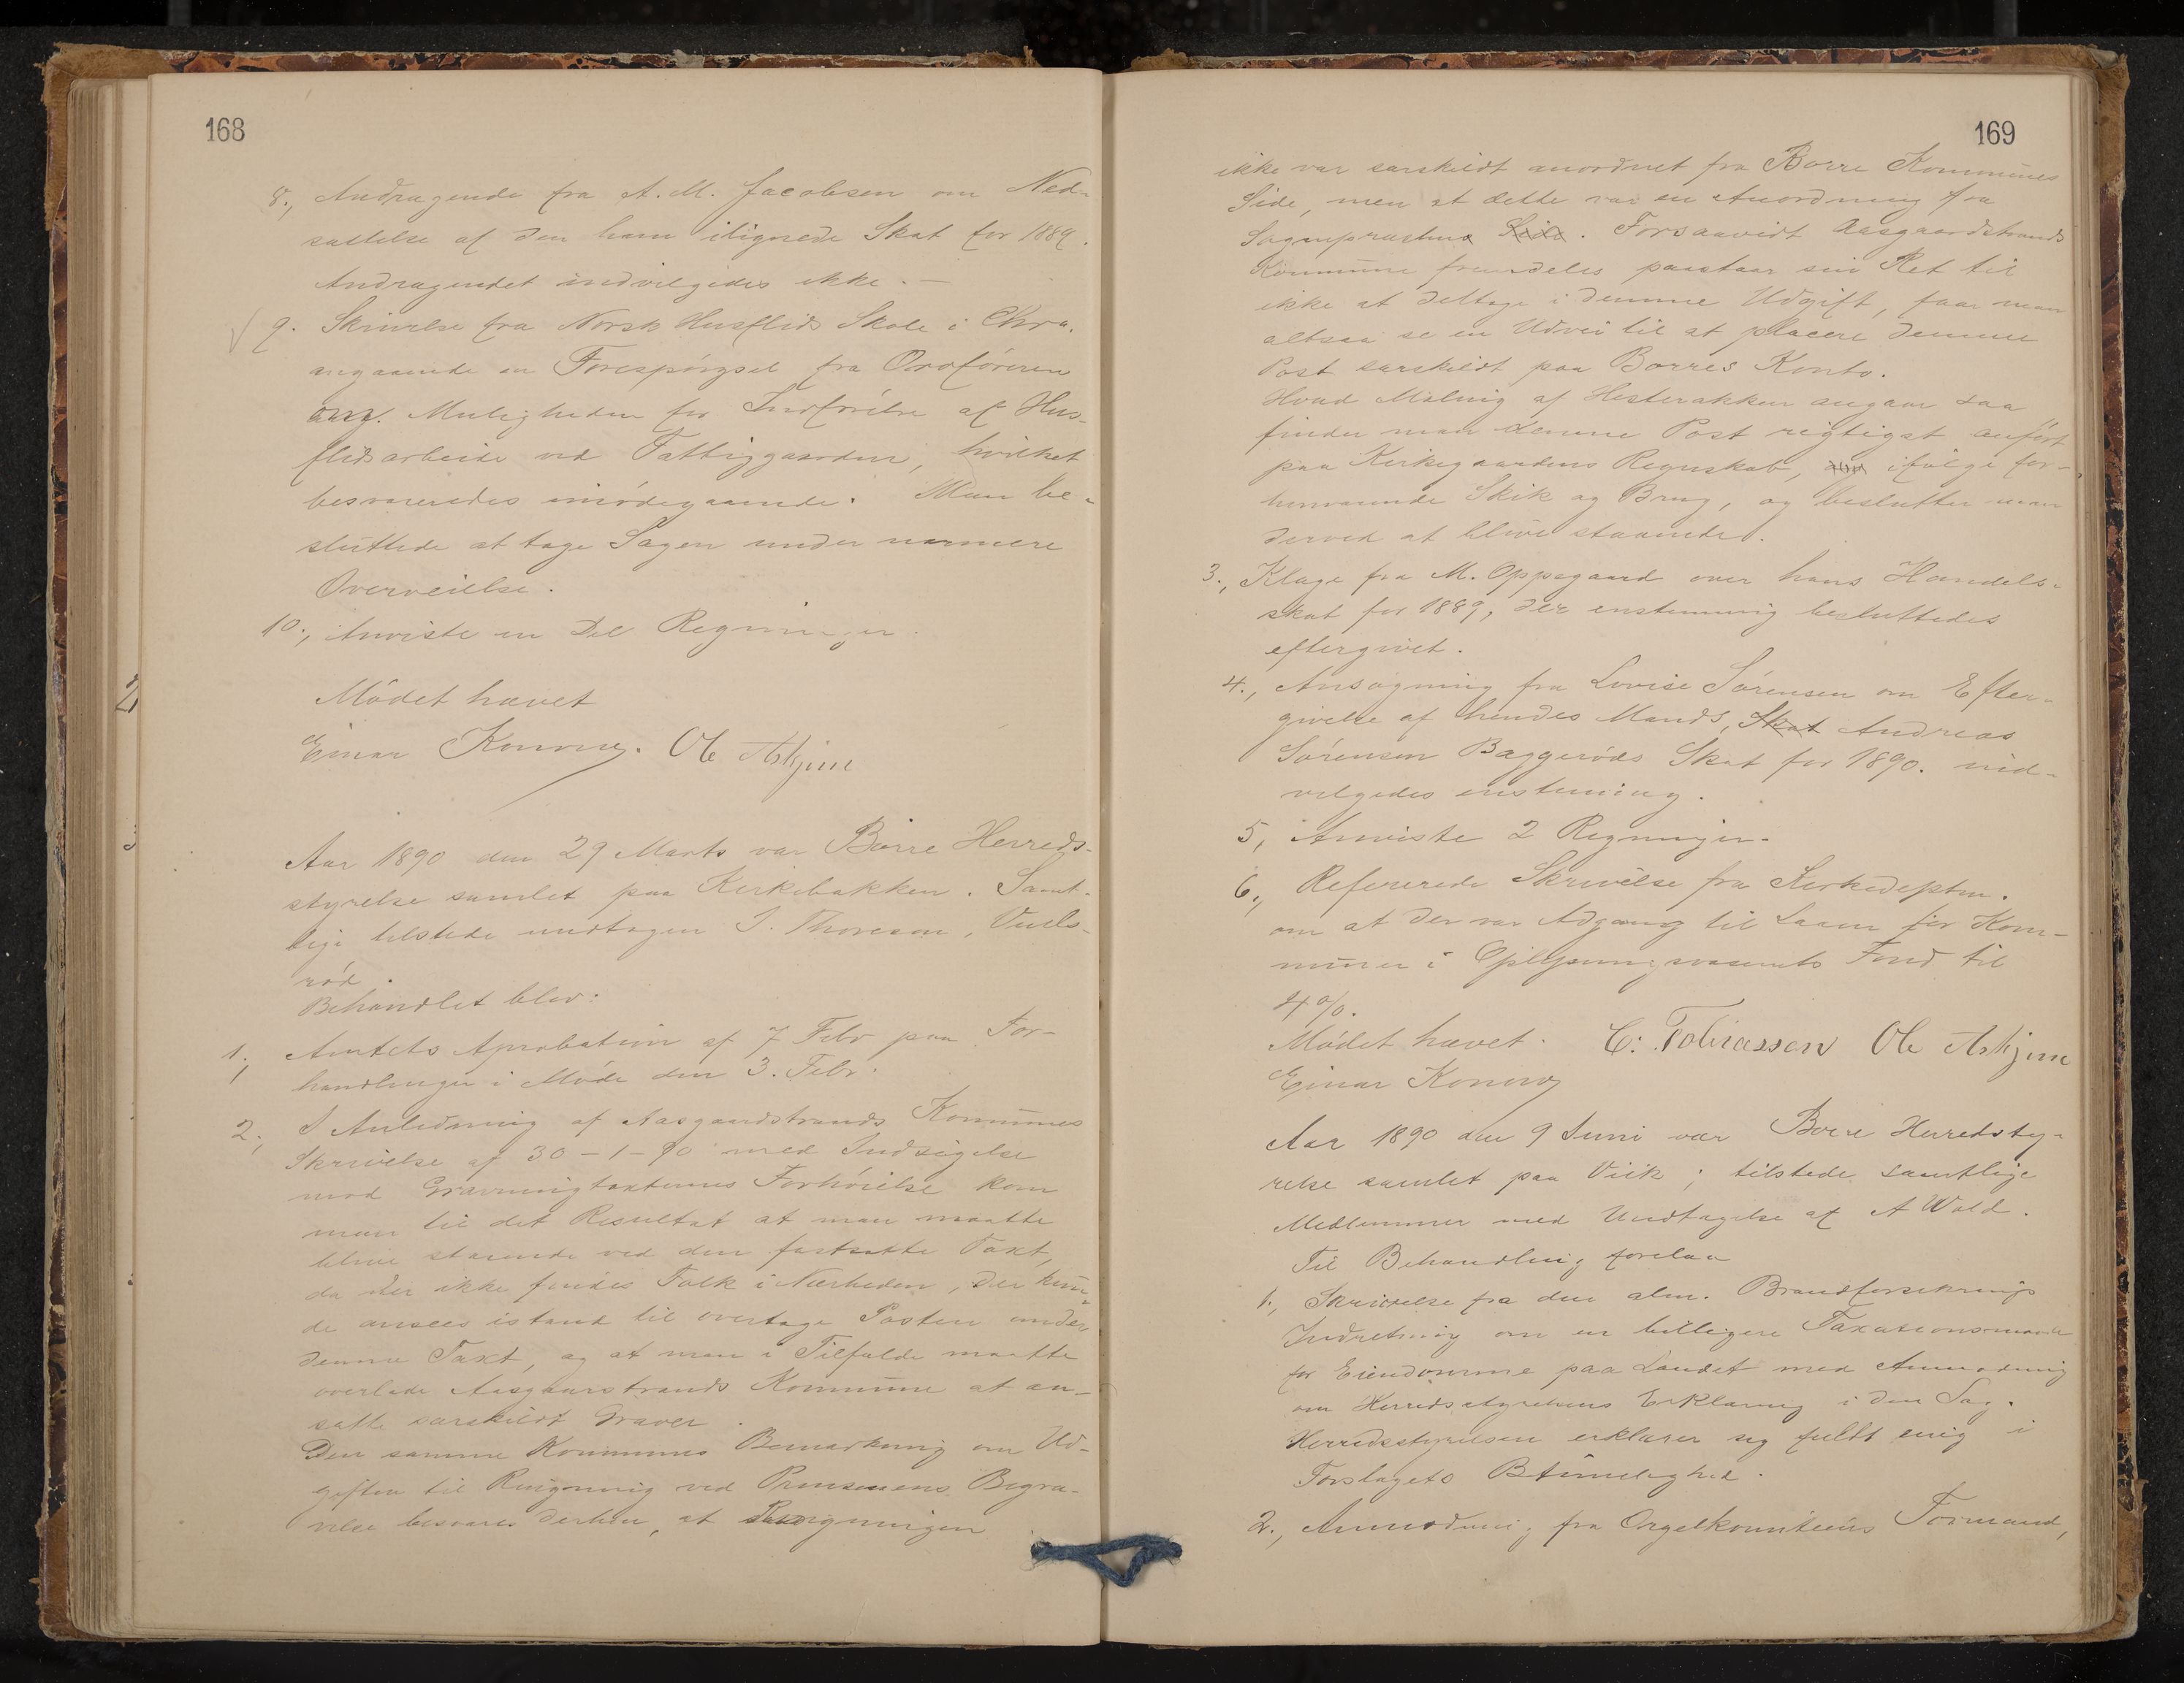 168
8., Andragende fra A. M. Jacobsen om Ned-
sættelse af den ham ilignede Skat for 1889.
Andragendet indvilgedes ikke. —
9. Skrivelse fra Norsk Husflids Skole i Chra.
angaaende en Forespørgsel fra Ordføreren
ang. Muligheden for Indførelse af Hus-
flidsarbeide ved Fattiggaarden, hvilket
besvareredes imødegaaende. Man be-
sluttede at tage Sagen under nærmere
Overveielse.
10., Anviste en Del Regninger.
Mødet hævet
Einar Konow. Ole Askjem
Aar 1890 den 29 Marts var Borre Herreds-
styrelse samlet paa Kirkebakken. Samt-
lige tilstede undtagen J. Thoreson,
rød.
Behandlet blev:
1., Amtets Aprobation af 7 Febr paa For-
handlinger i Møde den 3. Febr.
2., I Anledning af Aasgaardstrands Kommunes
Skrivelse af 30-1-90 med Indsigelse
mod Gravningtaxtens Forhøielse kom
man til det Resultat at man maatte
blive staaende ved den fastsatte Taxt,
da der ikke findes Folk i Nærheden, der kun-
de ansees istand til overtage Posten under
denne Taxt, og at man i Tilfælde maatte
overlade Aasgaarstrands Kommune at an-
sætte særskildt Graver.
Den samme Kommunes Bemærkning om Ud-
giften til Ringning ved Begra-
velse besvares derhen, at Ringningen
169
ikke var særskildt anordnet fra Borre Kommunes
Side, men at dette var en Anordning fra
Sogneprestens Side. Forsaavidt Aasgaardstrands
Kommune fremdeles paastaar sin Ret til
ikke at deltage i denne Udgift, faar man
altsaa se en Udvei til at placere denne
Post særskildt paa Borres Konto.
Hvad Maling af Hesterækken angaar saa
finder man denne Post rigtigst anført
paa Kirkegaardens Regnskab, og ifølge for-
henværende Skik og Brug, og beslutter man
derved at blive staaende.
3., Klage fra M. Oppegaard over hans Handels-
skat for 1889, der enstemmig besluttedes
eftergivet.
4., Ansøgning fra Lovise Sørensen om Efter-
givelse af hendes Mands, Skat Andreas
Sørensen Baggerøds Skat for 1890. ind-
vilgedes enstemmig.
5, Anviste 2 Regninger.
6., Refererede Skrivelse fra Kirkedeptm.
om at der var Adgang til Laan for Kom-
muner i Oplysningsvæsenets Fond til
4%.
Mødet hævet. C. Tobiassen Ole Askjem
Einar Konow
Aar 1890 den 9 Juni var Borre Herredsty-
relse samlet paa Viik; tilstede samtlige
Medlemmer med Undtagelse af A Wold.
Til Behandling forelaa
1., Skrivelse fra den alm. Brandforsikrings
Indretning om en billigere Taxationsmaade
for Eiendomme paa Landet med Anmodning
om Herredsstyrelsens Erklæring i den Sag.
Herredsstyrelsen erklærer sig fuldt enig i
Forslagets Betimelighed.
2., Anmodning fra Orgelkomiteens Formand,